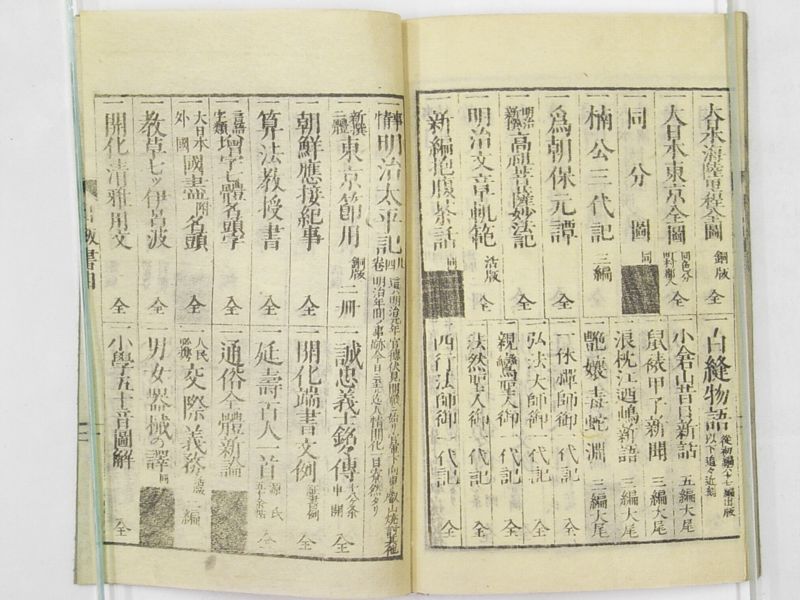 一大日本海陸里程全圖 銅版 全
一大日本東京全圖 全
一同 分圖 同
一楠公三代記 三編
一爲朝保元譚 全
一明治新撰高祖菩薩妙法記 全
一明治文章軌範 活版 全
一新編抱腹茶話 同
一白縫物語 從初編六十七編出版 以下追々近刻
一小倉山昔日新話 五編大尾
一鼠裱甲子新聞 三編大尾
一浪枕江迺嶋新語 三編大尾
一艶孃毒蛇淵 三編大尾
一一休禪師御一代記 全
一弘法大師御一代記 全
一親鸞聖人御一代記 全
一法然聖人御一代記 全
一西行法師御一代記 全
一事情明治太平記
一新撰三體東京節用 銅版 二册
一朝鮮應接紀事 全
一算法教授書 全
一言語字類增字七體名頭字 全
一大日本外國國盡附名頭 全
一教草七ツ伊呂波 全
一開化清雅用文 全
一誠忠義士銘々傳
一開化端書文例 全
一延壽百人一首 源氏五十四帖 全
一通俗合體新論 全
一人民必携交際義務 一編
一男女器械の譯 同
一小學五十音圖解 全